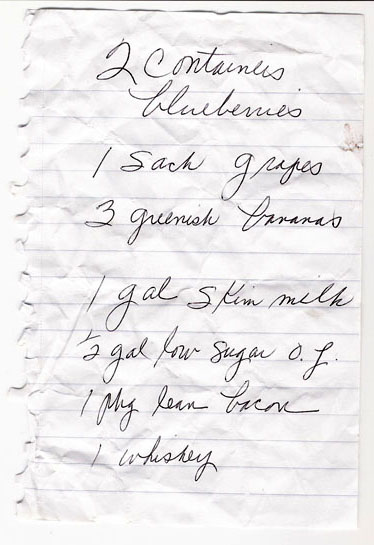 2 Containers
blueberries
1 Sack grapes
3 greenish bananas
1 gal skim milk
½ gal low sugar O.J.
1 pkg lean bacon
1 whiskey